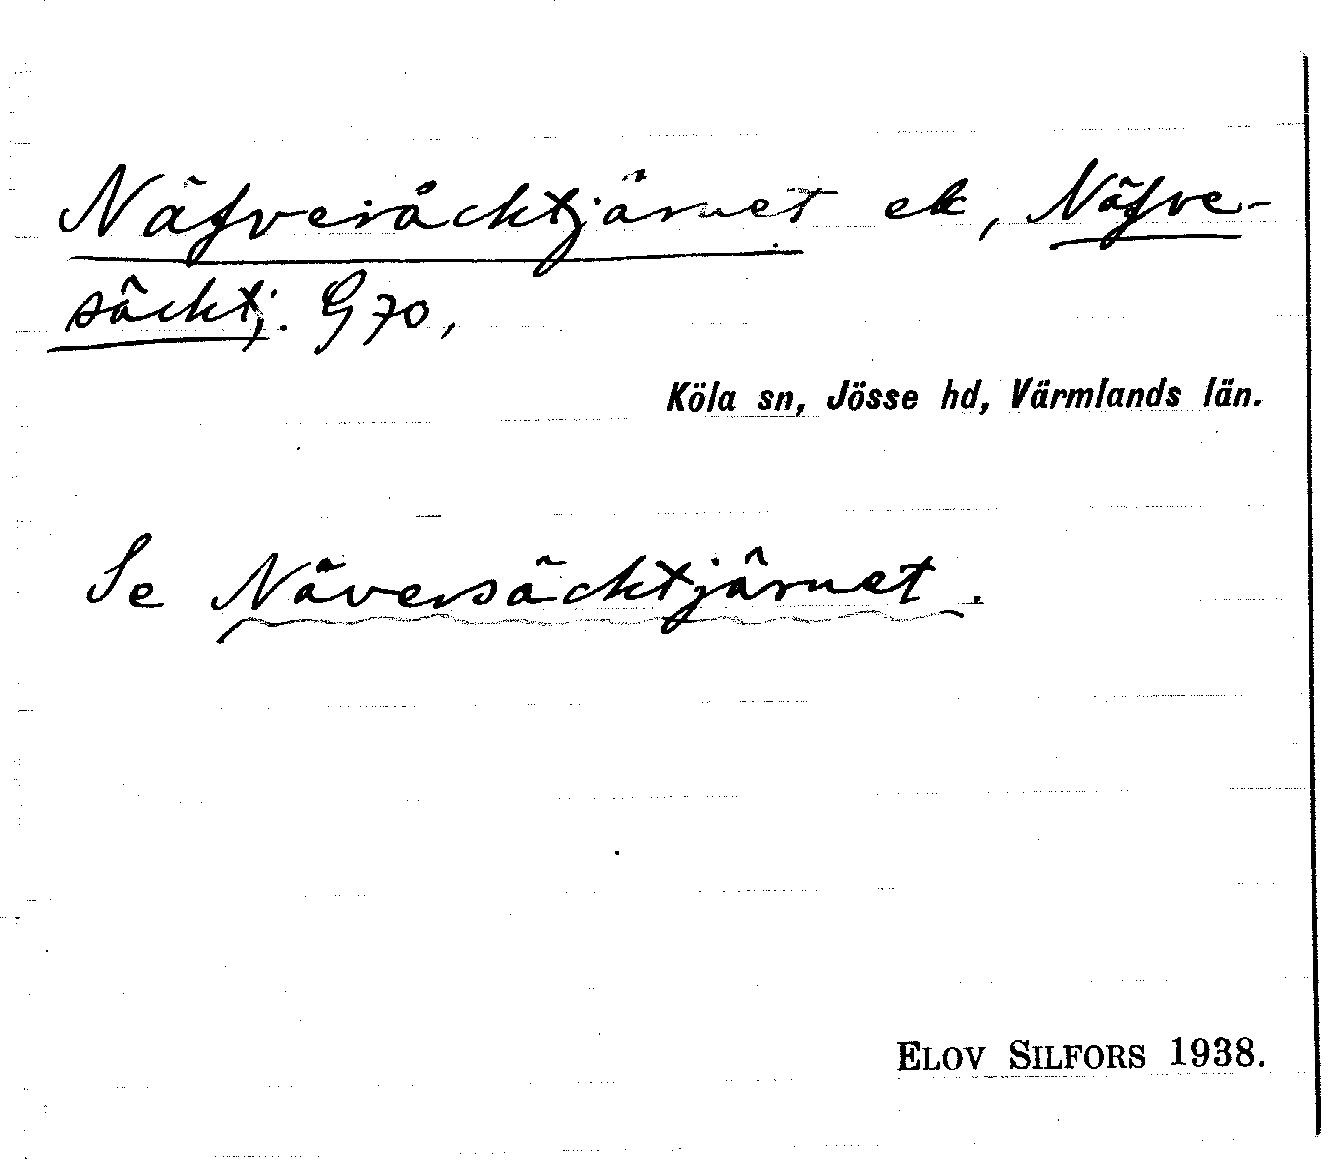 Näfveråcktjärnet ek, Näfve-
säcktj. G 70,
Köla sn, Jösse hd, Värmlands län.
Se Näversäcktjärnet.
ELOV SILFORS 1938.